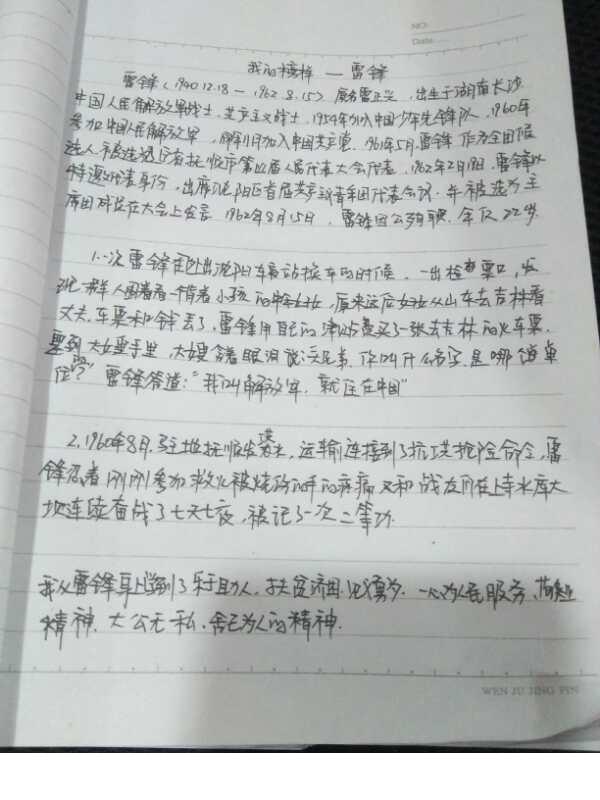 NO.
Date.
我的榜样 — 雷锋
雷锋 (1940.12.18 — 1962.8.15) 原名雷正兴, 出生于湖南长沙
中国人民解放军战士, 共产主义战士, 1954年加入中国少年先锋队, 1960年
参加中国人民解放军, 同年11月加入中国共产党. 1961年5月, 雷锋作为全团候
选人被选为辽宁省抚顺市第四届人民代表大会代表, 1962年2月19日, 雷锋以
特邀代表身份, 出席沈阳军区首届共产主义青年团代表会议, 并被选为主
席团成员在大会上发言. 1962年8月15日, 雷锋因公殉职, 年仅22岁.
1.一次雷锋在外出沈阳车站换车的时候, 一出检查票口, 发
现一群人围着一个背着小孩的中年妇女, 原来这位妇女从山东去吉林看
丈夫, 车票和钱丢了, 雷锋用自己的津贴费买了一张去吉林的火车票,
塞到大嫂手里, 大嫂含着眼泪说:兄弟, 你叫什么名字, 是哪个单
位的?" 雷锋答道:"我叫解放军, 就住在中国"
2.1960年8月, 驻地抚顺发洪水, 运输连接到了抗洪抢险命令, 雷
锋忍着刚刚参加救火被烧伤的手的疼痛又和战友们在上寺水库大
坝连续奋战了七天七夜, 被记了一次二等功.
我从雷锋身上学到了乐于助人, 扶贫济困, 见义勇为, 一心为人民服务,
精神, 大公无私, 舍己为人的精神.
WEN JU JING PIN